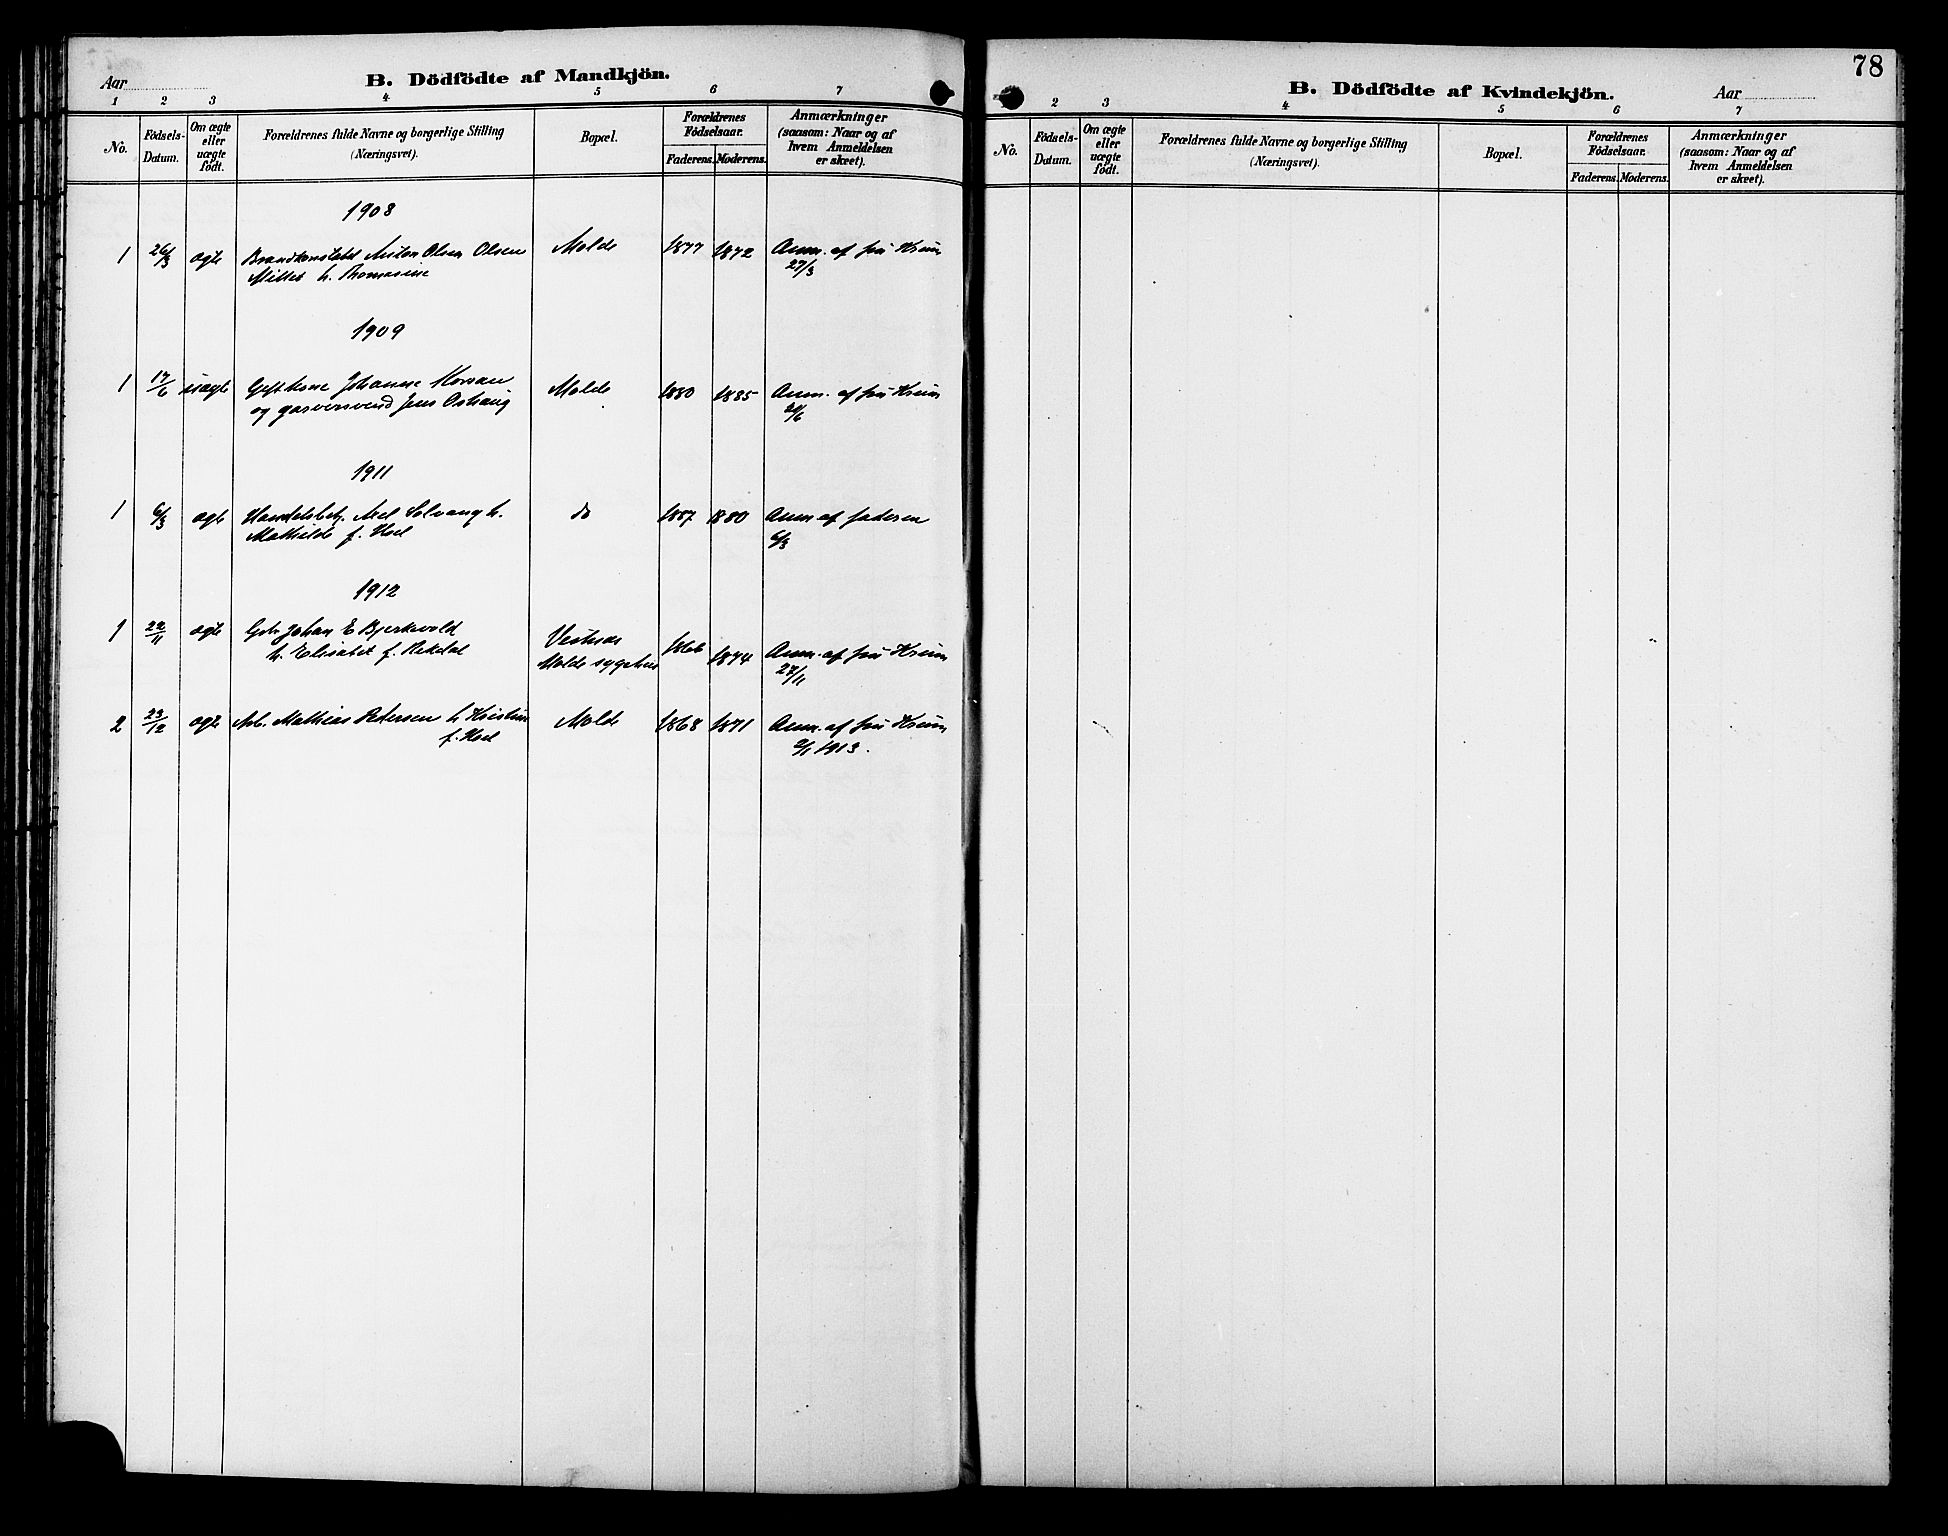 Aar
B. Dödfödte af Mandkjön.
1 2 3 4 5 6 7
No.
Födsels-Datum.
Om ægte eller uægte født.
Forældrenes fulde Navne og borgerlige Stilling
(Næringsvei).
Bopæl.
Forældrenes Födselsaar.
Faderens. Moderens.
Anmærkninger
(saasom: Naar og af
hvem Anmeldelsen
er skeet).
1908
1 26/3 ægte Brandkonstabel Anton Olsen Olsen Molde 1877 1872 Anm. af fru
Mittet h. Thomasine 27/3
1909
1 17/6 uægte Gift kone Johanne Molde 1880 1885 Anm. af fru
og garversvend Jens 21/6
1911
1 6/3 ægte Handelsbetj. Axel Solvang h. do 1887 1880 Anm af faderen
Mathilde f. Hoel 6/3
1912
1 22/11 ægte Gbr Johan E Bjerkevold Vestnes 1866 1874 Anm. af fru
h. Elisabet f. Rekdal Molde sygehus 27/11
2 23/12 ægte Arb. Mathias Petersen h Kristine Molde 1868 1871 Anm. af fru
f. Hoel 6/1 1913.
78
B. Dödfödte af Kvindekjön.
Aar
2 3 4 5 6 7
No.
Födsels-Datum.
Om ægte eller uægte födt.
Forældrenes fulde Navne og borgerlige Stilling
(Næringsvei).
Bopæl.
Forældrenes Födselsaar.
Faderens. Moderens.
Anmærkninger
(saasom: Naar og af
hvem Anmeldelsen
er skeet).